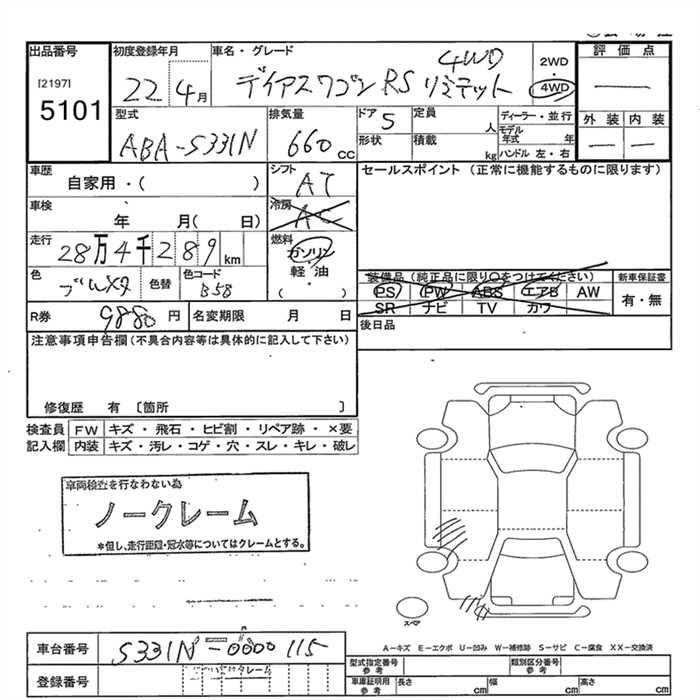 出品番号
[2197]
5101
初度登録年月
22 4月
車名・グレード
ディアスワゴン RS リミテット 4WD
2WD
・
4WD
評価点
—
型式
ABA-S331N
排気量
660 cc
ドア 5
形状
定員 人
積載 kg
ディーラー・並行
モデル年式 年
ハンドル 左・右
外装 内装
— —
車歴
自家用・( )
シフト
AT
セールスポイント (正常に機能するものに限ります)
車検
年 月( 日)
冷房
AC
走行
28万4千289 km
燃料
ガソリン
・
軽・油
( )
色
ブルメタ
色替
色コード
B58
装備品 (純正品に限り〇をつけてください)
PS PW ABS エアB AW
SR ナビ TV カワ
新車保証書
有・無
R券 9880 円
名変期限 月 日
後日品
注意事項申告欄 (不具合内容等は具体的に記入して下さい)
修復歴 有 〔箇所 〕
検査員記入欄
FW キズ・飛石・ヒビ割・リペア跡・×要
内装 キズ・汚レ・コゲ・穴・スレ・キレ・破レ
車両検査を行なわない為
ノークレーム
*但し、走行距離・冠水等についてはクレームとする。
スペア
A−キズ E−エクボ U−凹み W−補修跡 S−サビ C−腐食 XX−交換済
車台番号 S331N-0000115
登録番号
型式指定番号 参考
類別区分番号 参考
車庫証明用 参考
長さ cm
幅 cm
高さ cm